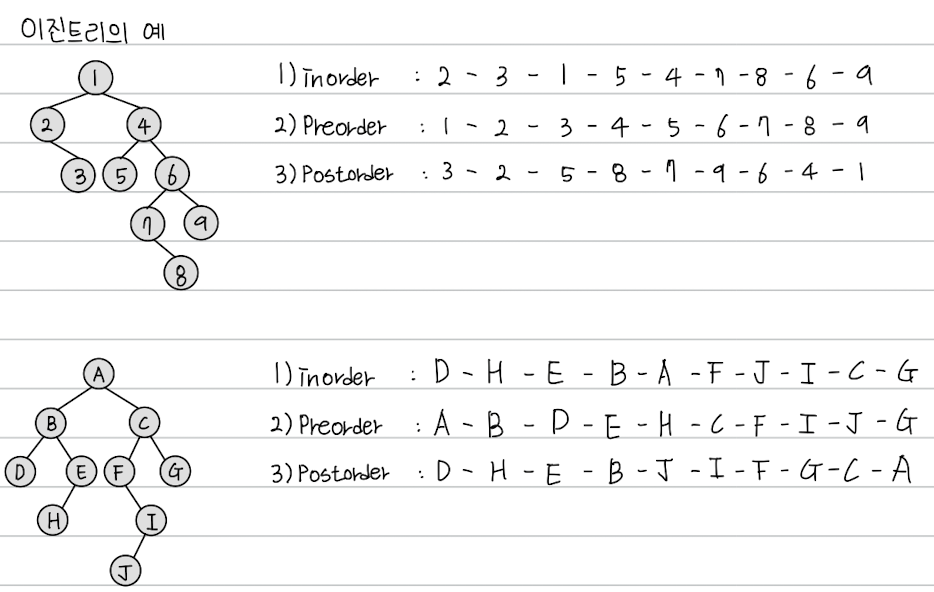 이진트리의 예
1
2 4
3 5 6
7 9
8
1) inorder : 2 - 3 - 1 - 5 - 4 - 7 - 8 - 6 - 9
2) Preorder : 1 - 2 - 3 - 4 - 5 - 6 - 7 - 8 - 9
3) Postorder : 3 - 2 - 5 - 8 - 7 - 9 - 6 - 4 - 1
A
B C
D E F G
H I
J
1) inorder : D - H - E - B - A - F - J - I - C - G
2) Preorder : A - B - D - E - H - C - F - I - J - G
3) Postorder : D - H - E - B - J - I - F - G - C - A